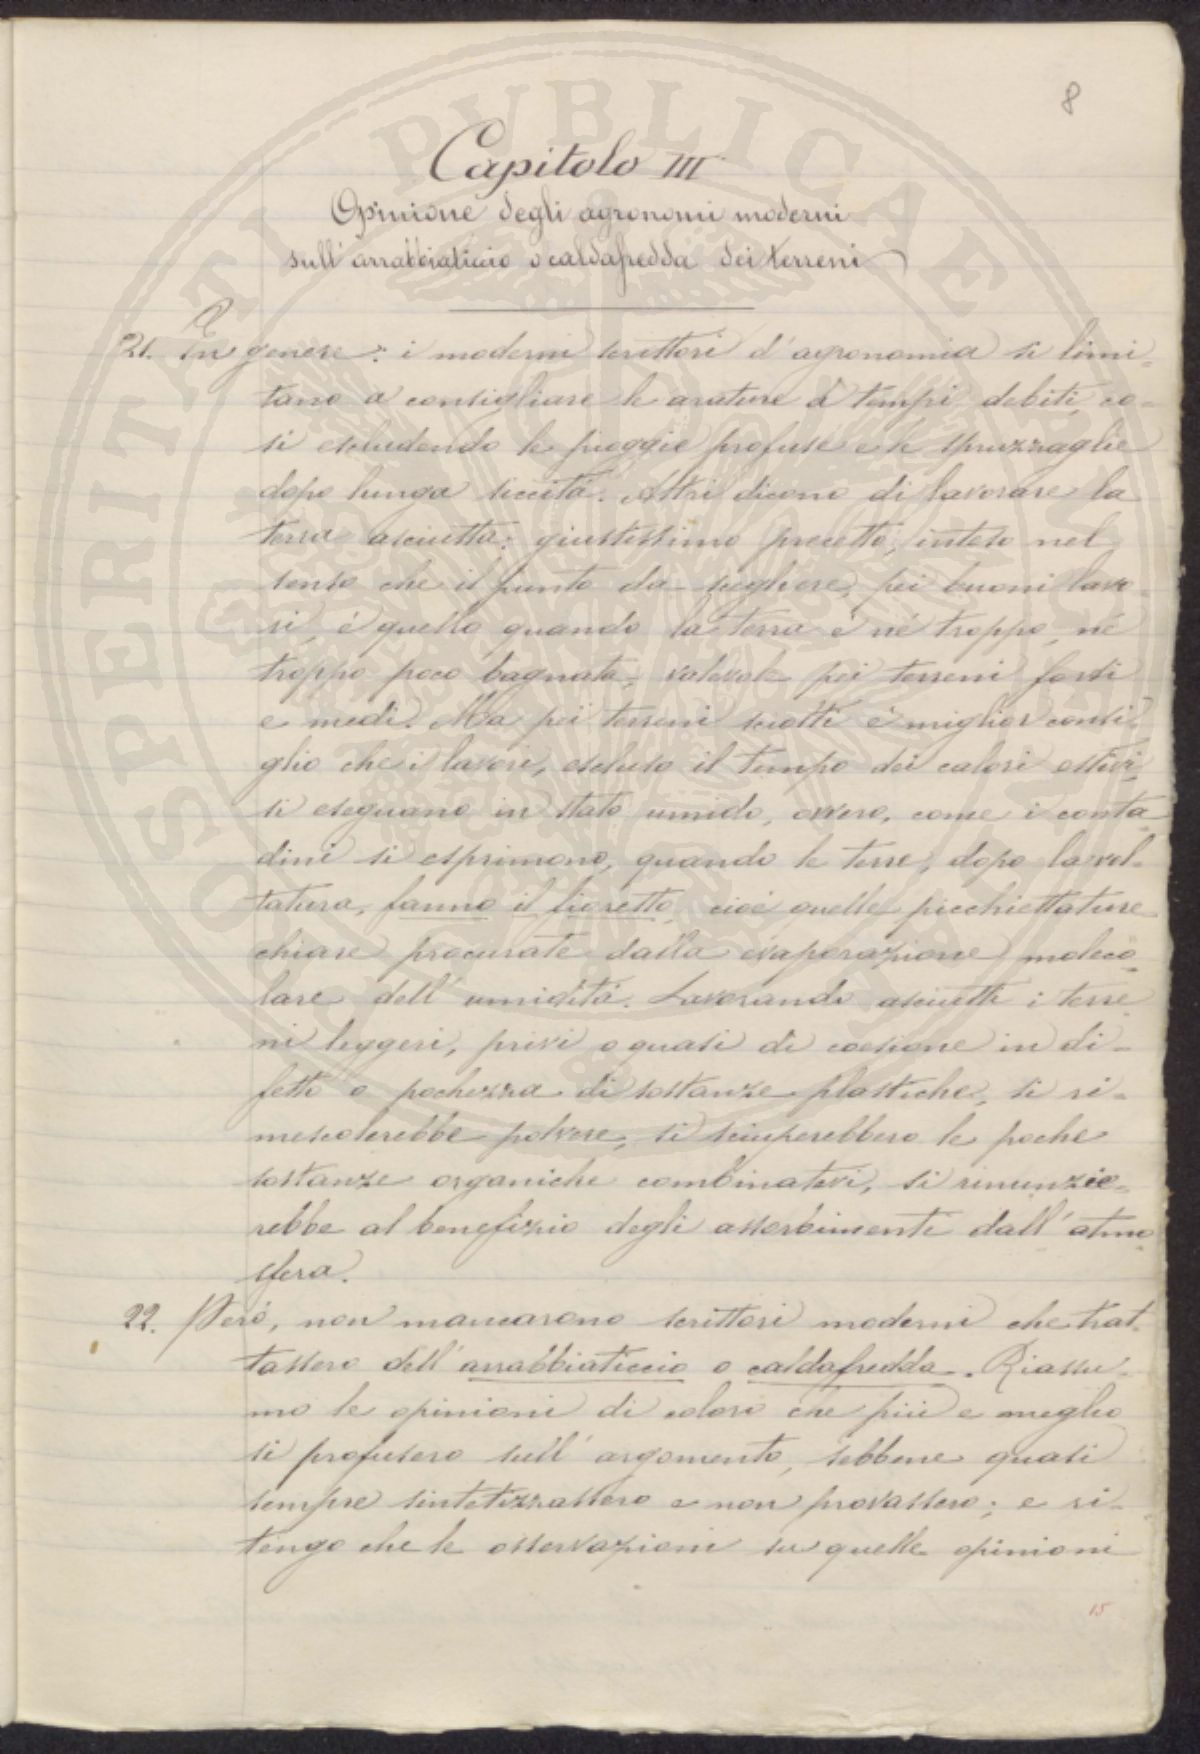 8
Capitolo III
Opinione degli agronomi moderni
sull'arrabbiaticcio o caldafredda dei terreni
21. In genere: i moderni scrittori d'agronomia si limi-
tano a consigliare le arature a tempi debiti, co-
sì escludendo le pioggie profuse e le spruzzaglie
dopo lunga siccità. Altri dicono di lavorare la
terra asciutta: giustissimo precetto, inteso nel
senso che il punto da scegliere, pei buoni lavo-
ri, è quello quando la terra è né troppo, né
troppo poco bagnata, valevole pei terreni forti
e medi. Ma pei terreni sciolti è miglior consi-
glio che i lavori, escluso il tempo dei calori estivi,
si eseguano in stato umido, ovvero, come i conta-
dini si esprimono, quando le terre, dopo la vol-
tatura, fanno il fioretto, cioè quelle picchiettature
chiare procurate dalla evaporazione moleco-
lare dell'umidità. Lavorando asciutti i terre-
ni leggeri, privi o quasi di coesione in di-
fetto o pochezza di sostanze plastiche, si ri-
mescolerebbe polvere, si sciuperebbero le poche
sostanze organiche combinatevi, si rinunzie-
rebbe al benefizio degli assorbimenti dall'atmo-
sfera.
22. Però, non mancarono scrittori moderni che trat-
tassero dell'arrabbiaticcio o caldafredda. Riassu-
mo le opinioni di coloro che più e meglio
si profusero sull'argomento, sebbene quasi
sempre sintetizzassero e non provassero; e ri-
tengo che le osservazioni su quelle opinioni
15
SPERITATI PUBLICAE